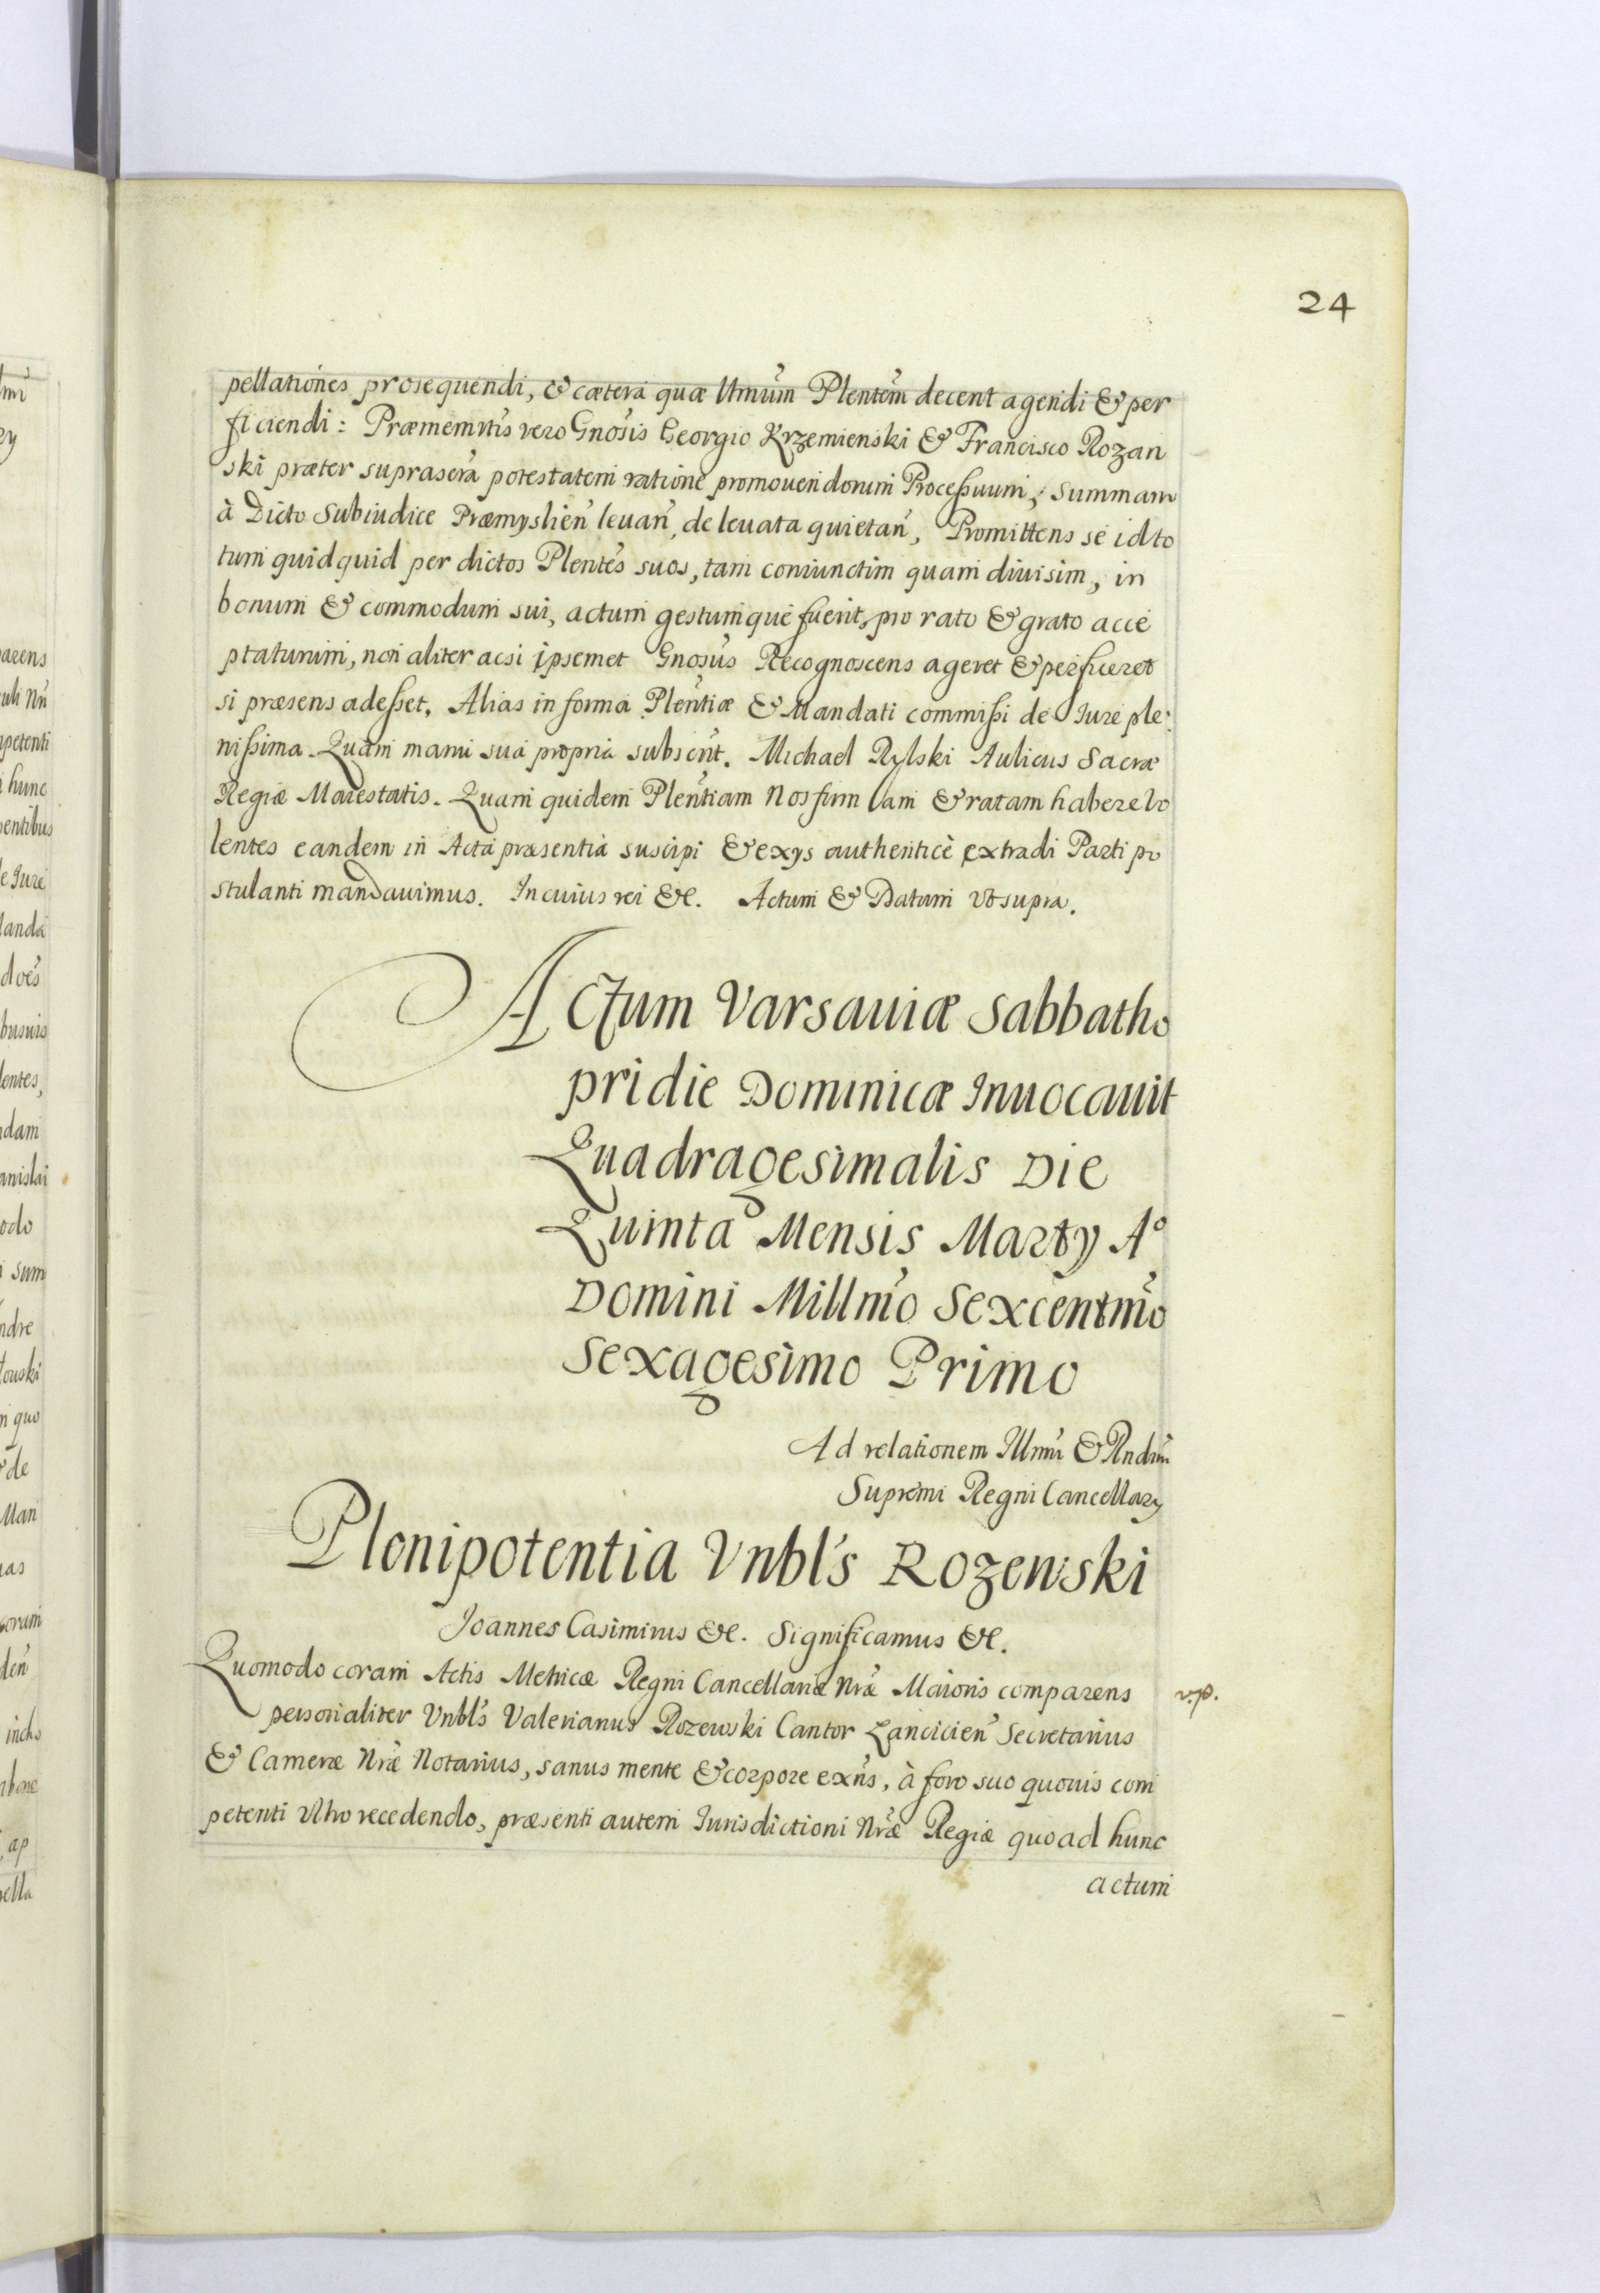 24
pellationes prosequendi, & cætera quæ Unum Plentem decent agendi & per
ficiendi: Præmemtis vero Gnosis Georgio Krzemienski & Francisco Rozan
ski præter suprascra potestatem ratione promouendorum Processuum, summam
à Dicto Subiudice Præmyslien leuan, de leuata quietan, Promittens se id to
tum quidquid per dictos Plentes suos, tam coniunctim quam diuisim, in
bonum & commodum sui, actum gestumque fuerit, pro rato & grato acce
ptaturum, non aliter acsi ipsemet Gnosus Recognoscens ageret & perficeret
si præsens adesset. Alias in forma Plentiæ & Mandati commissi de Iure ple:
nissima. Quam manu sua propria subscrit. Michael Rylski Aulicus Sacræ
Regiæ Maiestatis. Quam quidem Plentiam Nos firmam & ratam habere vo
lentes eandem in Acta præsentia suscipi & exys authenticè extradi Parti po
stulanti mandauimus. In cuius rei &c. Actum & Datum Vt supra.
Actum Varsauiæ Sabbatho
pridie Dominicæ Inuocauit
Quadragesimalis Die
Quinta Mensis Marty Aº
Domini Millmo Sexcentmo
Sexagesimo Primo
Ad relationem Illmi & Rndmi
Supremi Regni Cancellary
Plenipotentia Vnbls Rozewski
Joannes Casimirus &c. Significamus &c.
Quomodo coram Actis Metricæ Regni Cancellariæ Nræ Maioris comparens
personaliter Vnbls Valerianus Rozewski Cantor Lancicien Secretarius
& Cameræ Nræ Notarius, sanus mente & corpore exns, à foro suo quouis com
petenti Vltro recedendo, præsenti autem Iurisdictioni Nræ Regiæ quoad hunc
actum